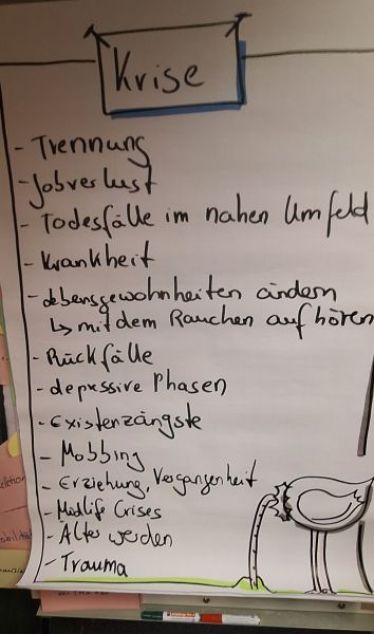 Krise
- Trennung
- Jobverlust
- Todesfälle im nahen Umfeld
- Krankheit
- Lebensgewohnheiten ändern
↳ mit dem Rauchen aufhören
- Rückfälle
- depressive Phasen
- Existenzängste
- Mobbing
- Erziehung, Vergangenheit
- Midlife Crises
- Älter werden
- Trauma